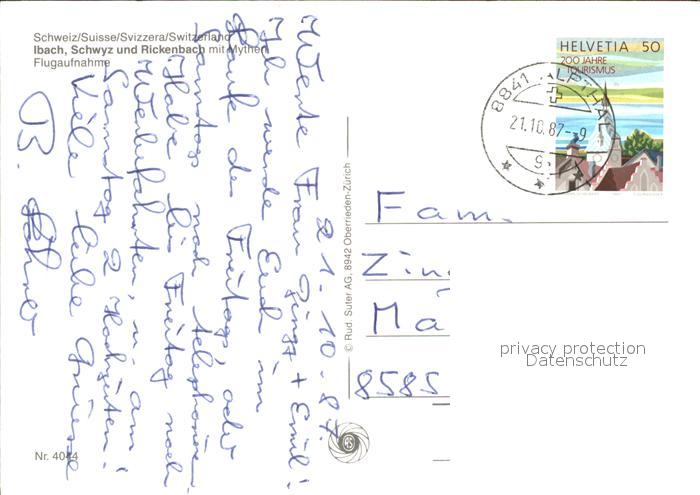 Schweiz/Suisse/Svizzera/Switzerland
Ibach, Schwyz und Rickenbach mit Mythen
Flugaufnahme
HELVETIA 50
200 JAHRE
TOURISMUS
8841 ALPTHAL
21.10.87-9
21.-10.-87.
Werte Frau Zingg + Emil!
Ich werde Euch im
Laufe des Freitags, oder
Samstag noch telephonieren.
Habe bis Freitag noch
Weberfahrten, u. am
Samstag 2 Hochzeiten!
Viele liebe Grüsse
B.
© Rud. Suter AG, 8942 Oberrieden-Zürich
Fam.
Zin
Mä
8585
privacy protection
Datenschutz
Nr. 4044